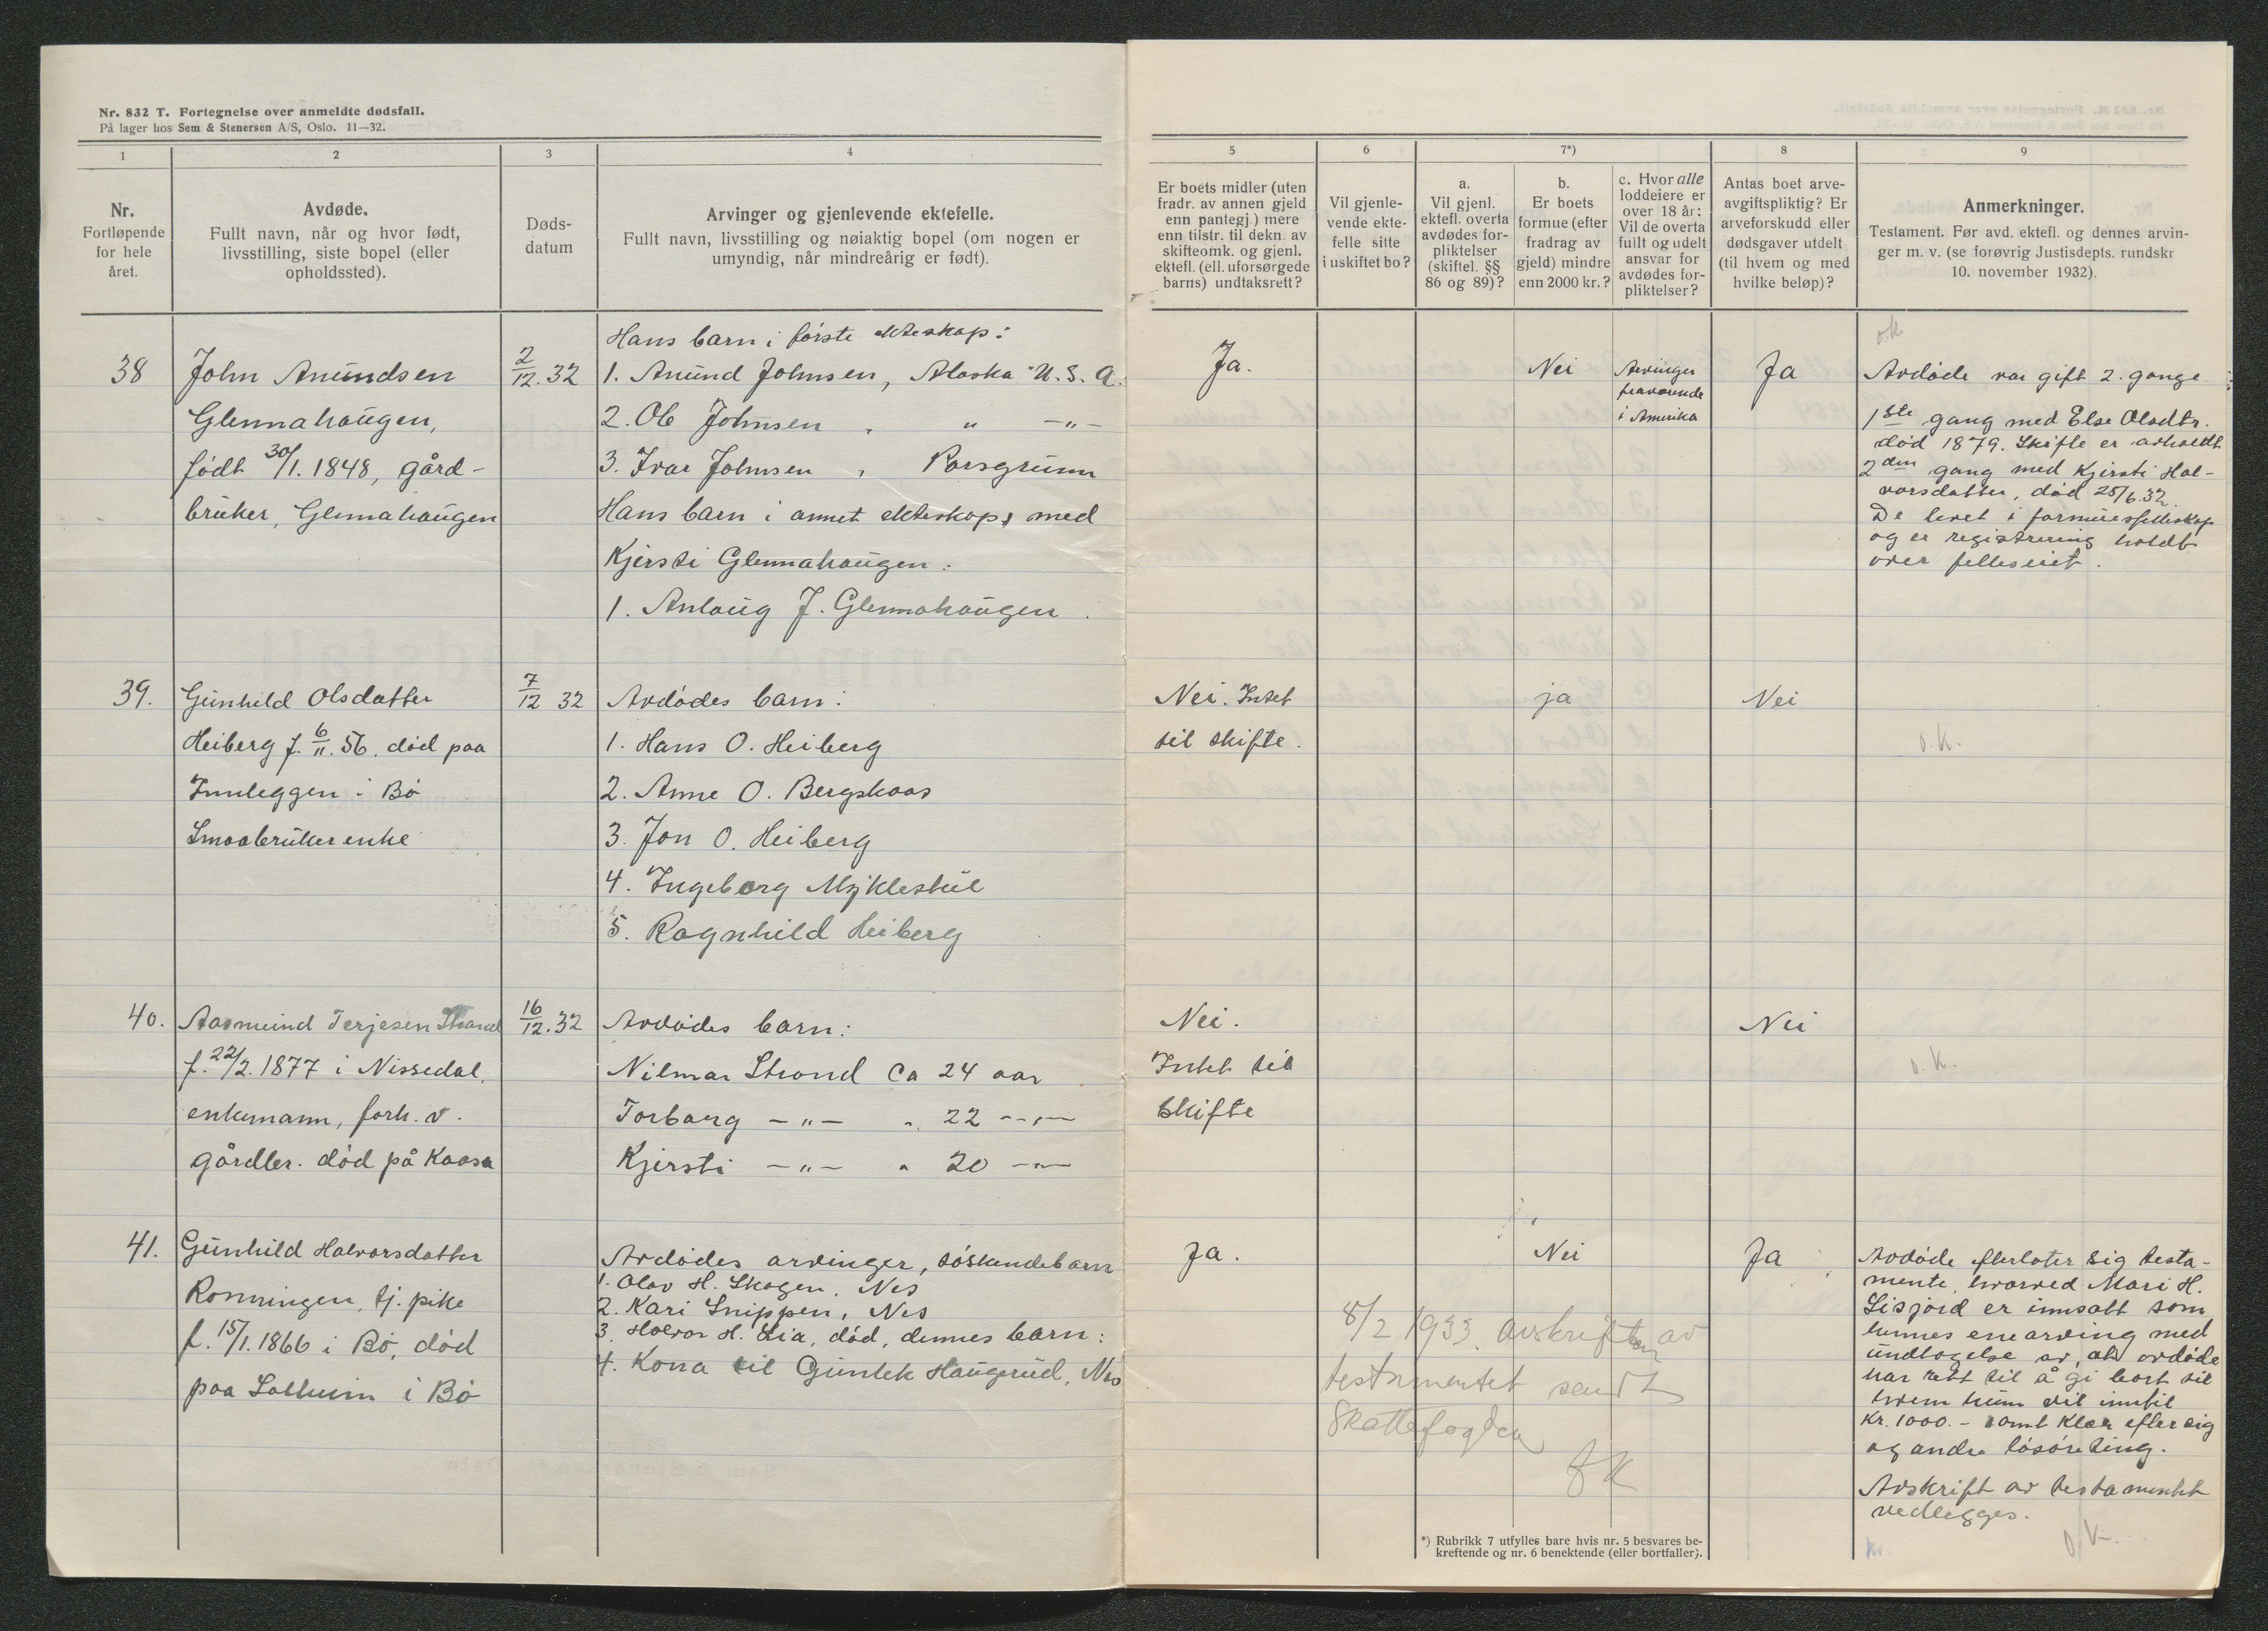 Nr. 832 T. Fortegnelse over anmeldte dødsfall.
På lager hos Sem & Stenersen A/S, Oslo. 11—32.
1
2
3
4
Nr.
Fortløpende
for hele
året.
Avdøde.
Fullt navn, når og hvor født,
livsstilling, siste bopel (eller
opholdssted).
Døds-
datum
Arvinger og gjenlevende ektefelle.
Fullt navn, livsstilling og nøiaktig bopel (om nogen er
umyndig, når mindreårig er født).
38
John Anundsen
Glennahaugen,
født 30/1. 1848, gård-
bruker, Glennahaugen
2/12. 32
Hans barn i første ekteskap:
1. Anund Johnsen, Alaska U. S. A.
2. Ole Johnsen , " —"—
3. Ivar Johnsen , Porsgrunn
Hans barn i annet ekteskap, med
Kjersti Glennahaugen:
1. Anlaug J. Glennahaugen.
39.
Gunhild Olsdatter
Heiberg f. 6/11. 56. død paa
Innleggen i Bø
Smaabruker enke
7/12 32
Avdødes barn:
1. Hans O. Heiberg
2. Anne O. Bergskaas
3. Jon O. Heiberg
4. Ingeborg Myklestul
5. Ragnhild Heiberg
40.
Aasmund Terjesen Strand
f. 22/2. 1877 i Nissedal,
enkemann, forh. v.
gårdbr. død på Kaasa
16/12. 32
Avdødes barn:
Nilmar Strond ca 24 aar
Torbarg —"— " 22 —"—
Kjersti —"— " 20 —"—
41.
Gunhild Halvorsdatter
Rønningen, tj. pike
f. 15/1. 1866 i Bø, død
paa Solheim i Bø
Avdødes arvinger, søskendebarn
1. Olav H. Skogen, Nes
2. Kari Snippen, Nes
3. Halvor H. Lia, død, dennes barn:
4. Kona til Gunlek Haugerud, Nes
5
6
7*)
8
9
Er boets midler (uten
fradr. av annen gjeld
enn pantegj.) mere
enn tilstr. til dekn. av
skifteomk. og gjenl.
ektefl. (ell. uforsørgede
barns) undtaksrett?
Vil gjenle-
vende ekte-
felle sitte
i uskiftet bo?
a.
Vil gjenl.
ektefl. overta
avdødes for-
pliktelser
(skiftel. §§
86 og 89)?
b.
Er boets
formue (efter
fradrag av
gjeld) mindre
enn 2000 kr.?
c. Hvor alle
loddeiere er
over 18 år:
Vil de overta
fullt og udelt
ansvar for
avdødes for-
pliktelser?
Antas boet arve-
avgiftspliktig? Er
arveforskudd eller
dødsgaver utdelt
(til hvem og med
hvilke beløp)?
Anmerkninger.
Testament. Før avd. ektefl. og dennes arvin-
ger m. v. (se forøvrig Justisdepts. rundskr
10. november 1932).
Ja.
Nei
Arvinger
fraværende
i Amerika
Ja
o.k.
Avdøde var gift 2. gange.
1ste gang med Else Olsdtr.
død 1879. Skifte er avholdt
2den gang med Kjersti Hal-
vorsdatter, død 25/6.32.
De levet i formuesfelleskap
og er registrering holdt
over felleseiet.
Nei. Intet
til skifte.
ja
Nei
o.k.
Nei.
Intet til
skifte
Nei
o.k.
Ja.
Nei
Ja
Avdøde efterlater sig testa-
mente, hvorved Mari H.
Lisjord er innsatt som
hennes enearving med
undtagelse av, at avdøde
har rett til å gi bort til
hvem hun vil inntil
Kr. 1000.- samt klær efter sig
og andre løsøreting.
Avskrift av testamentet
vedlegges.
o.k.
8/2 1933. avskriften av
testamentet sendt
Skattefogden
*) Rubrikk 7 utfylles bare hvis nr. 5 besvares be-
kreftende og nr. 6 benektende (eller bortfaller).